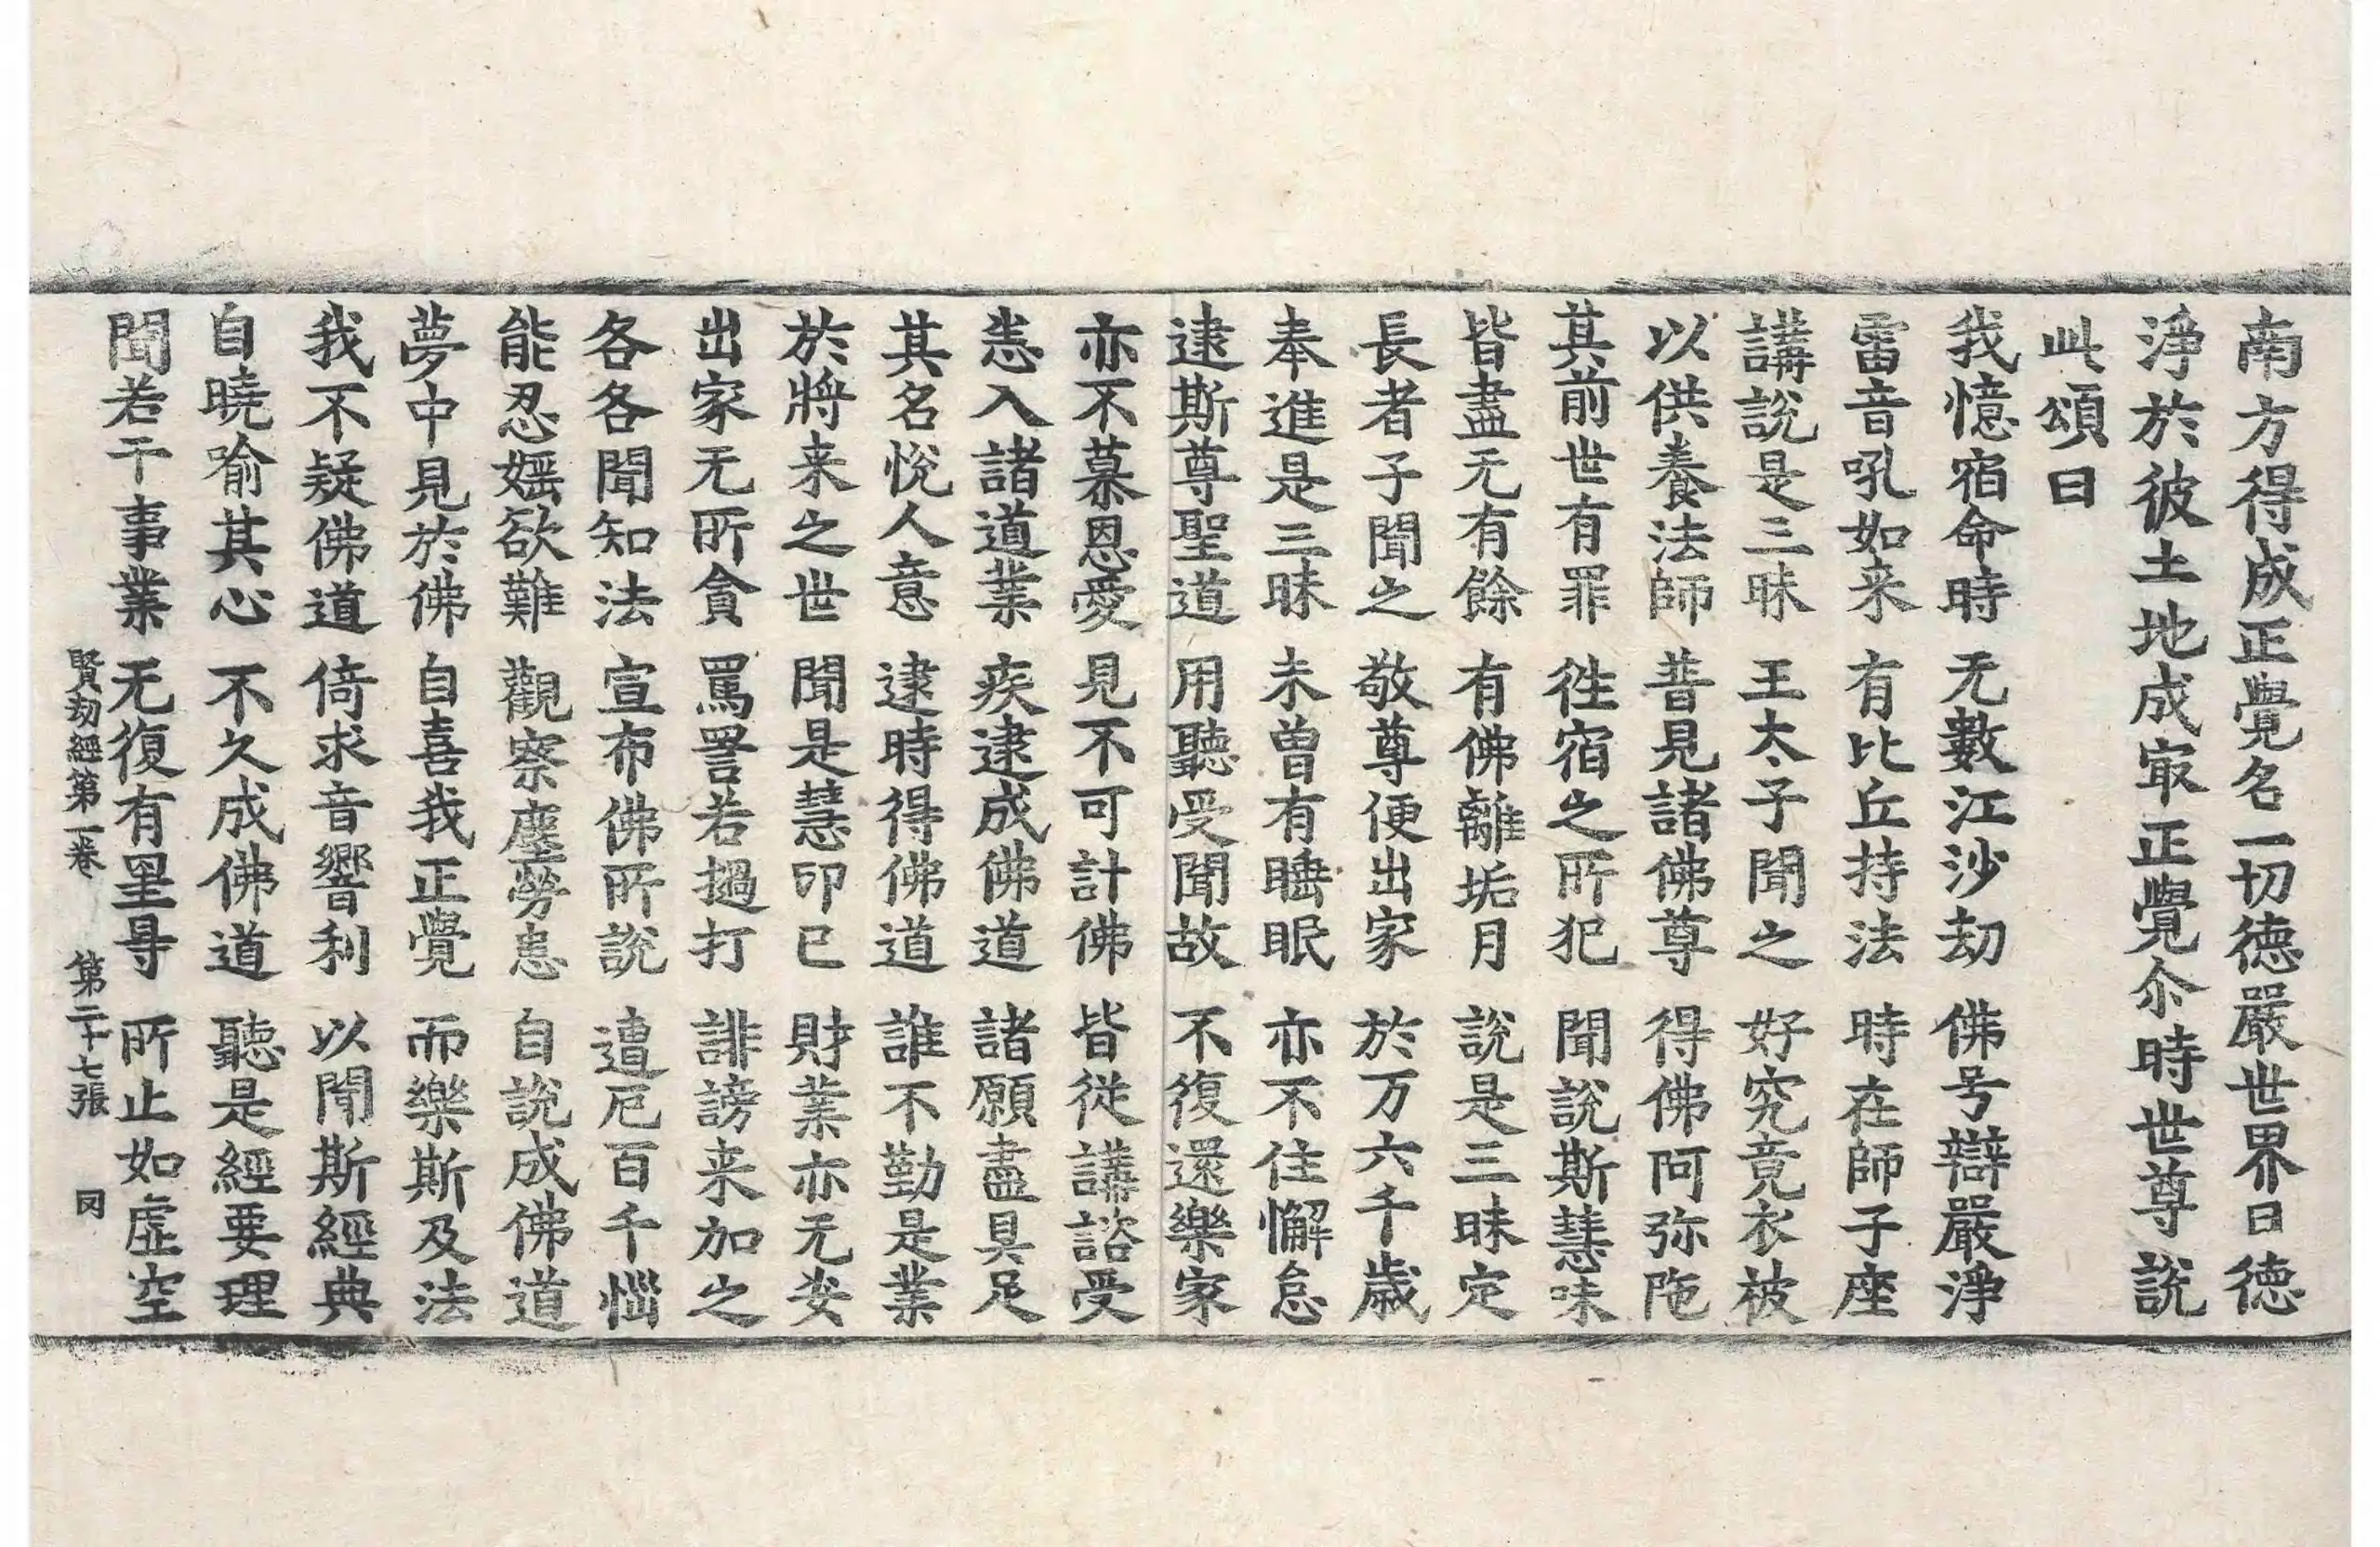 南方得成正覺名一切德嚴世界曰德
淨於彼土地成㝡正覺尒時世尊說
此頌曰
我憶宿命時 无數江沙劫 佛号辯嚴淨
雷音吼如来 有比丘持法 時在師子座
講說是三昧 王太子聞之 好究竟衣被
以供養法師 昔見諸佛尊 得佛阿弥陁
其前世有罪 徃宿之所犯 聞說斯慧味
皆盡无有餘 有佛離垢月 說是三昧定
長者子聞之 敬尊便出家 於万六千歲
奉進是三昧 未曾有睡眠 亦不住懈怠
逮斯尊聖道 用聽受聞故 不復還樂家
亦不慕恩愛 見不可計佛 皆從講諮受
恚入諸道業 疾逮成佛道 諸願盡具足
其名悅人意 逮時得佛道 誰不勤是業
於將来之世 聞是慧印已 財業亦无妄
出家无所貪 罵詈若撾打 誹謗来加之
各各聞知法 宣布佛所說 遭厄百千惱
能忍婬欲難 觀察塵勞患 自說成佛道
夢中見於佛 自喜我正覺 而樂斯及法
我不疑佛道 倚求音響利 以聞斯經典
自曉喻其心 不久成佛道 聽是經要理
聞若干事業 无復有罣㝵 所止如虛空
賢劫經第一卷 第二十七張 罔